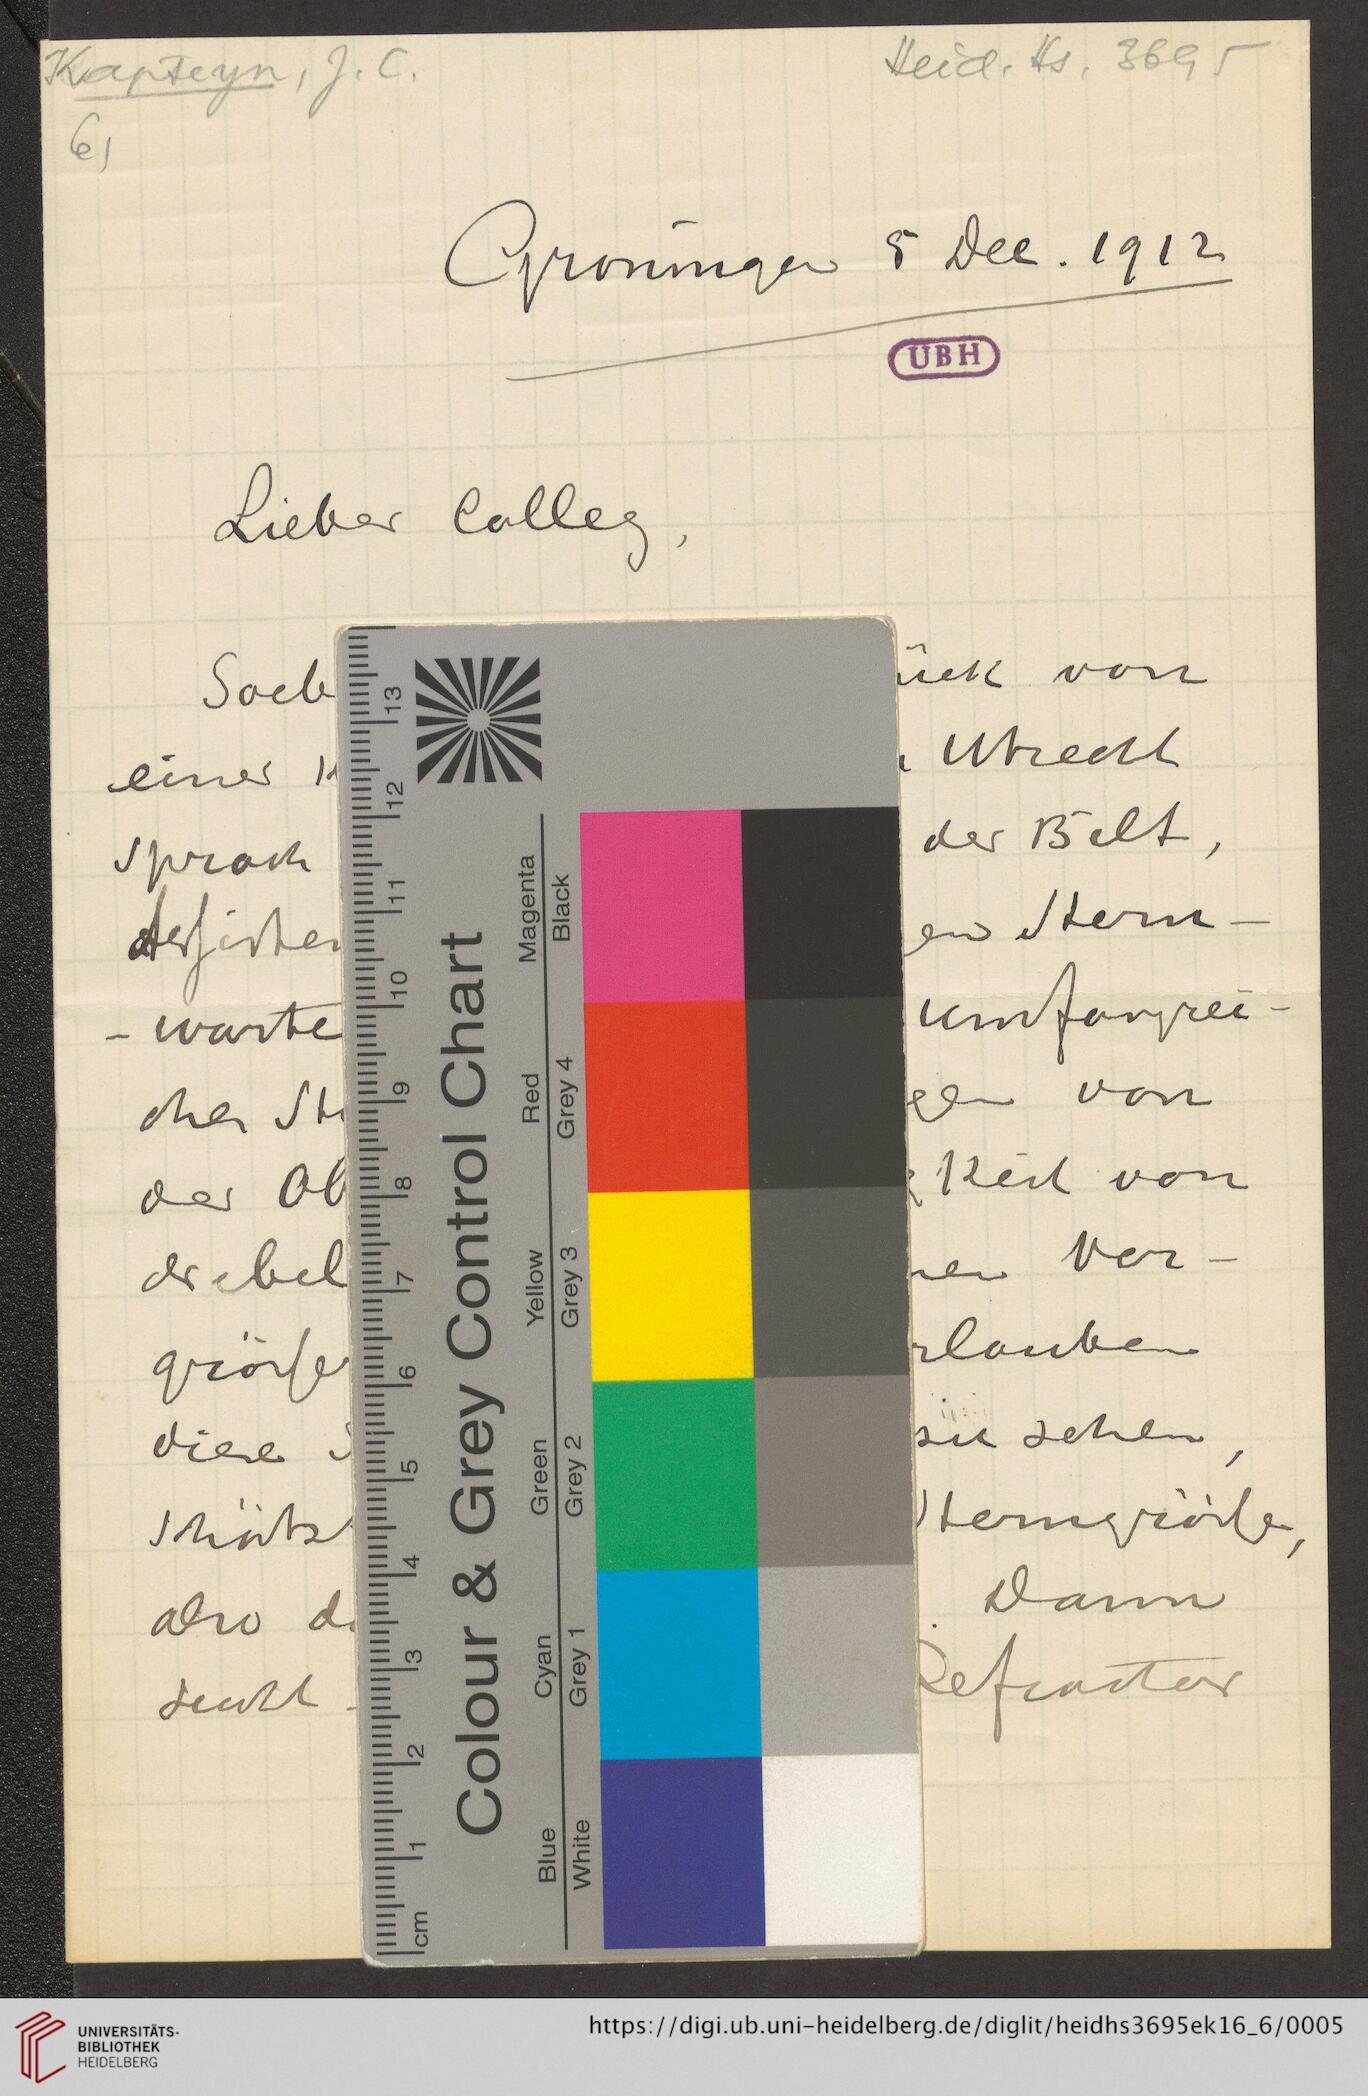 Kapteyn, J. C.
Heid. Hs. 3695
6)
Groningen 5 Dec. 1912
UBH
Lieber Colleg,
Soeb ück von
einer Utrecht
sprach der Bilt,
en Stern-
- warte umfangrei-
cher St gen von
der Ob Keit von
nen Ver-
größer rlauben
diese zu sehen,
schätz Sterngröße,
also d Dann
sucht Refractor
13
12
11
10
9
8
7
6
5
4
3
2
1
cm
Colour & Grey Control Chart
Magenta
Black
Red
Grey 4
Yellow
Grey 3
Green
Grey 2
Cyan
Grey 1
Blue
White
UNIVERSITÄTS-
BIBLIOTHEK
HEIDELBERG
https://digi.ub.uni-heidelberg.de/diglit/heidhs3695ek16_6/0005